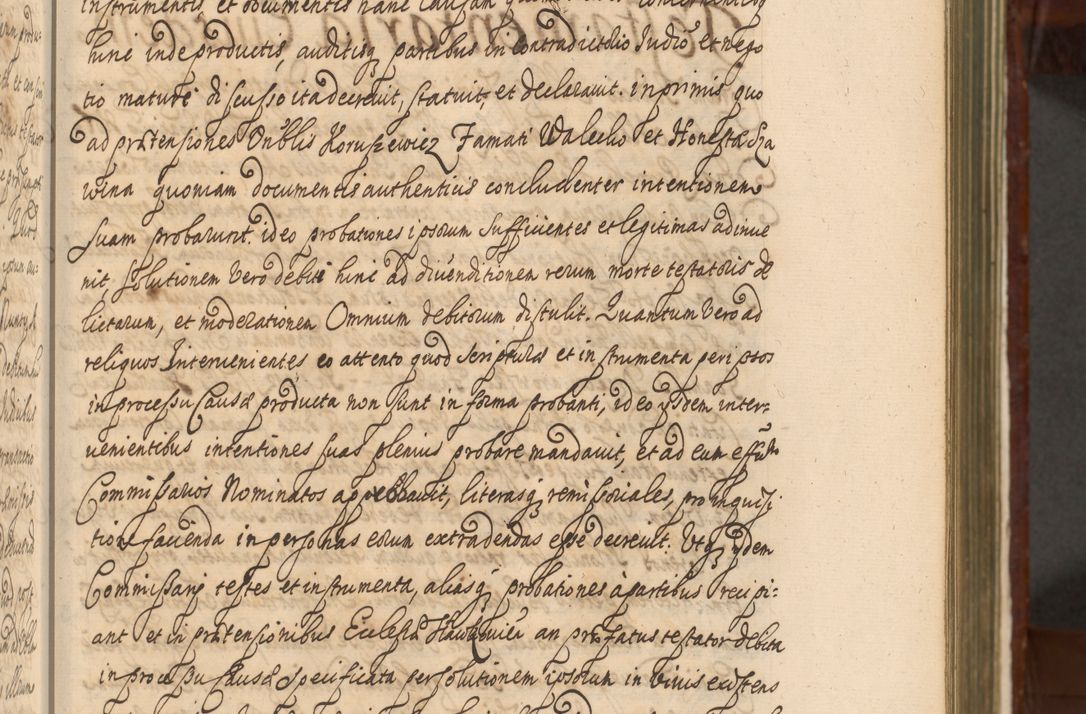 instrumentis, et documentis hanc causam
hinc inde productis, auditisq partibus in contradictorio Iudicio et nego
tio mature discusso ita decrevit, statuit, et declaravit. inprimis quo
ad prætensiones Nobilis Koruszewicz Famati Walecho et Honesta Sza
wina quoniam documentis authenticis concludenter intentionem
suam probarunt. ideo probationes ipsorum sufficientes et legitimas adinve
nit, solutionem vero debiti hinc ad divenditionem rerum morte testatoris de
lictarum, et moderationem Omnium debitorum distulit. Quantum vero ad
reliquos Intervenientes eo attento quod scripturæ et instrumenta per ipsos
in processu Causæ producta non sunt in forma probanti, ideo ysdem inter=
venientibus intentiones suas plenius probare mandavit, et ad eum effũm
Commissarios Nominatos appellavit, literasq remissoriales, pro inquisi
tione facienda in personas eorum extradendas esse decrevit. Utq ydem
Commissarij testes et instrumenta, aliasq probationes à partibus recipi=
ant et in prætensionibus Ecclesiæ an præfatus testator debita
in processu Causæ specificata persolutionem ipsorum in vivis existens